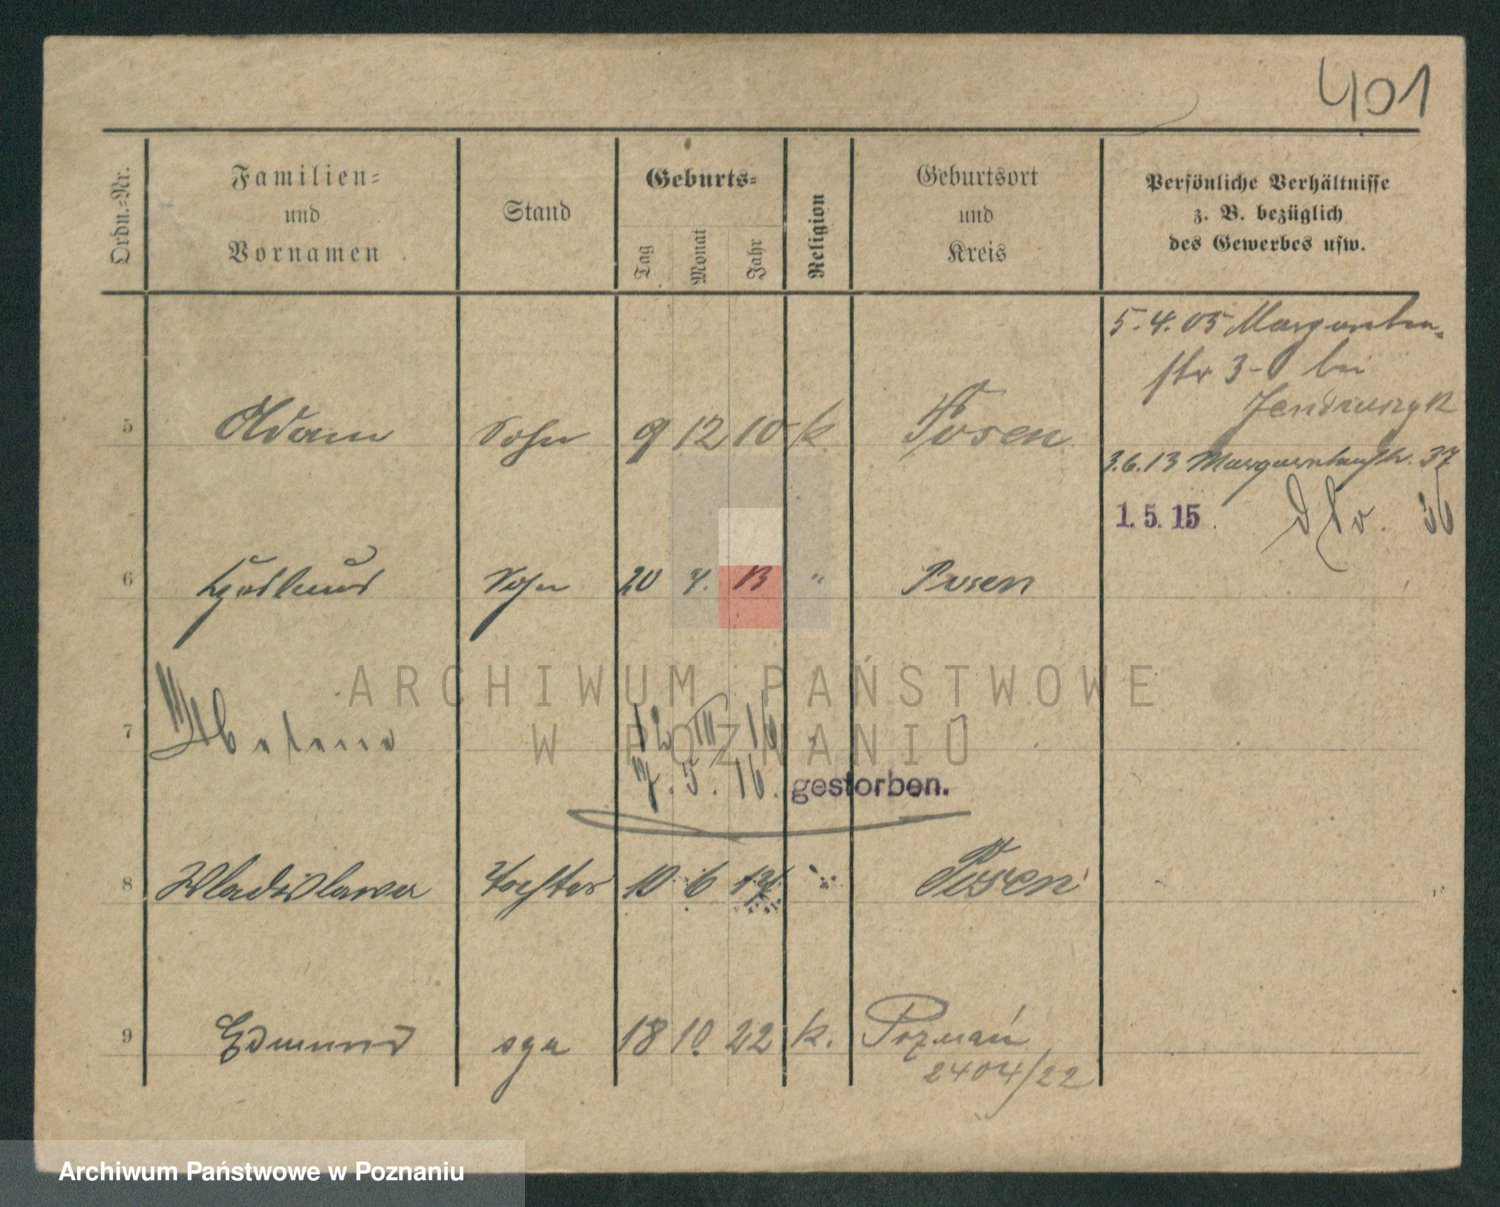 401
Ordn.-Nr.
Familien-
und
Vornamen
Stand
Geburts-
Tag
Monat
Jahr
Religion
Geburtsort
und
Kreis
Persönliche Verhältnisse
z. B. bezüglich
des Gewerbes usw.
5.4.05 Margareten-
str 3- bei
5 Adam Sohn 9 12 10 k. Posen
3.6.13 Margaretenstr. 37
1.5.15. dto. 36
6 Sohn 20 4. 13 " Posen
7 12 III 16
7. 5. 16. gestorben.
8 Wladislawa Tochter 10 6 14 " Posen
9 Edmund syn 18 10 22 k. Poznań
2404/22
ARCHIWUM PAŃSTWOWE
W POZNANIU
Archiwum Państwowe w Poznaniu